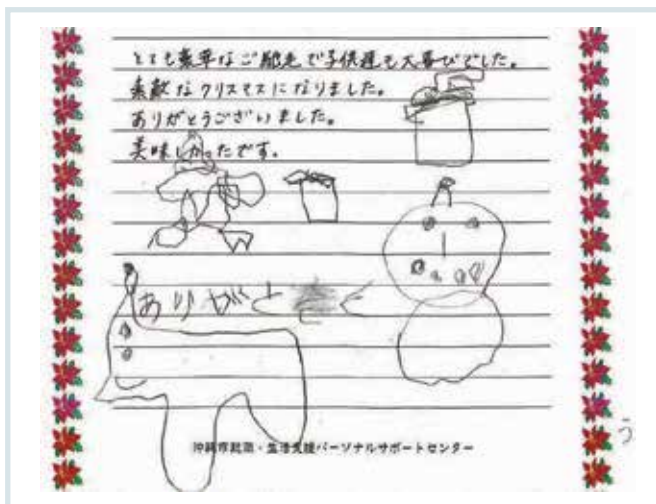 とても豪華なご馳走で子供達も大喜びでした。
素敵なクリスマスになりました。
ありがとうございました。
美味しかったです。
ありがと
う
沖縄市就職・生活支援パーソナルサポートセンター